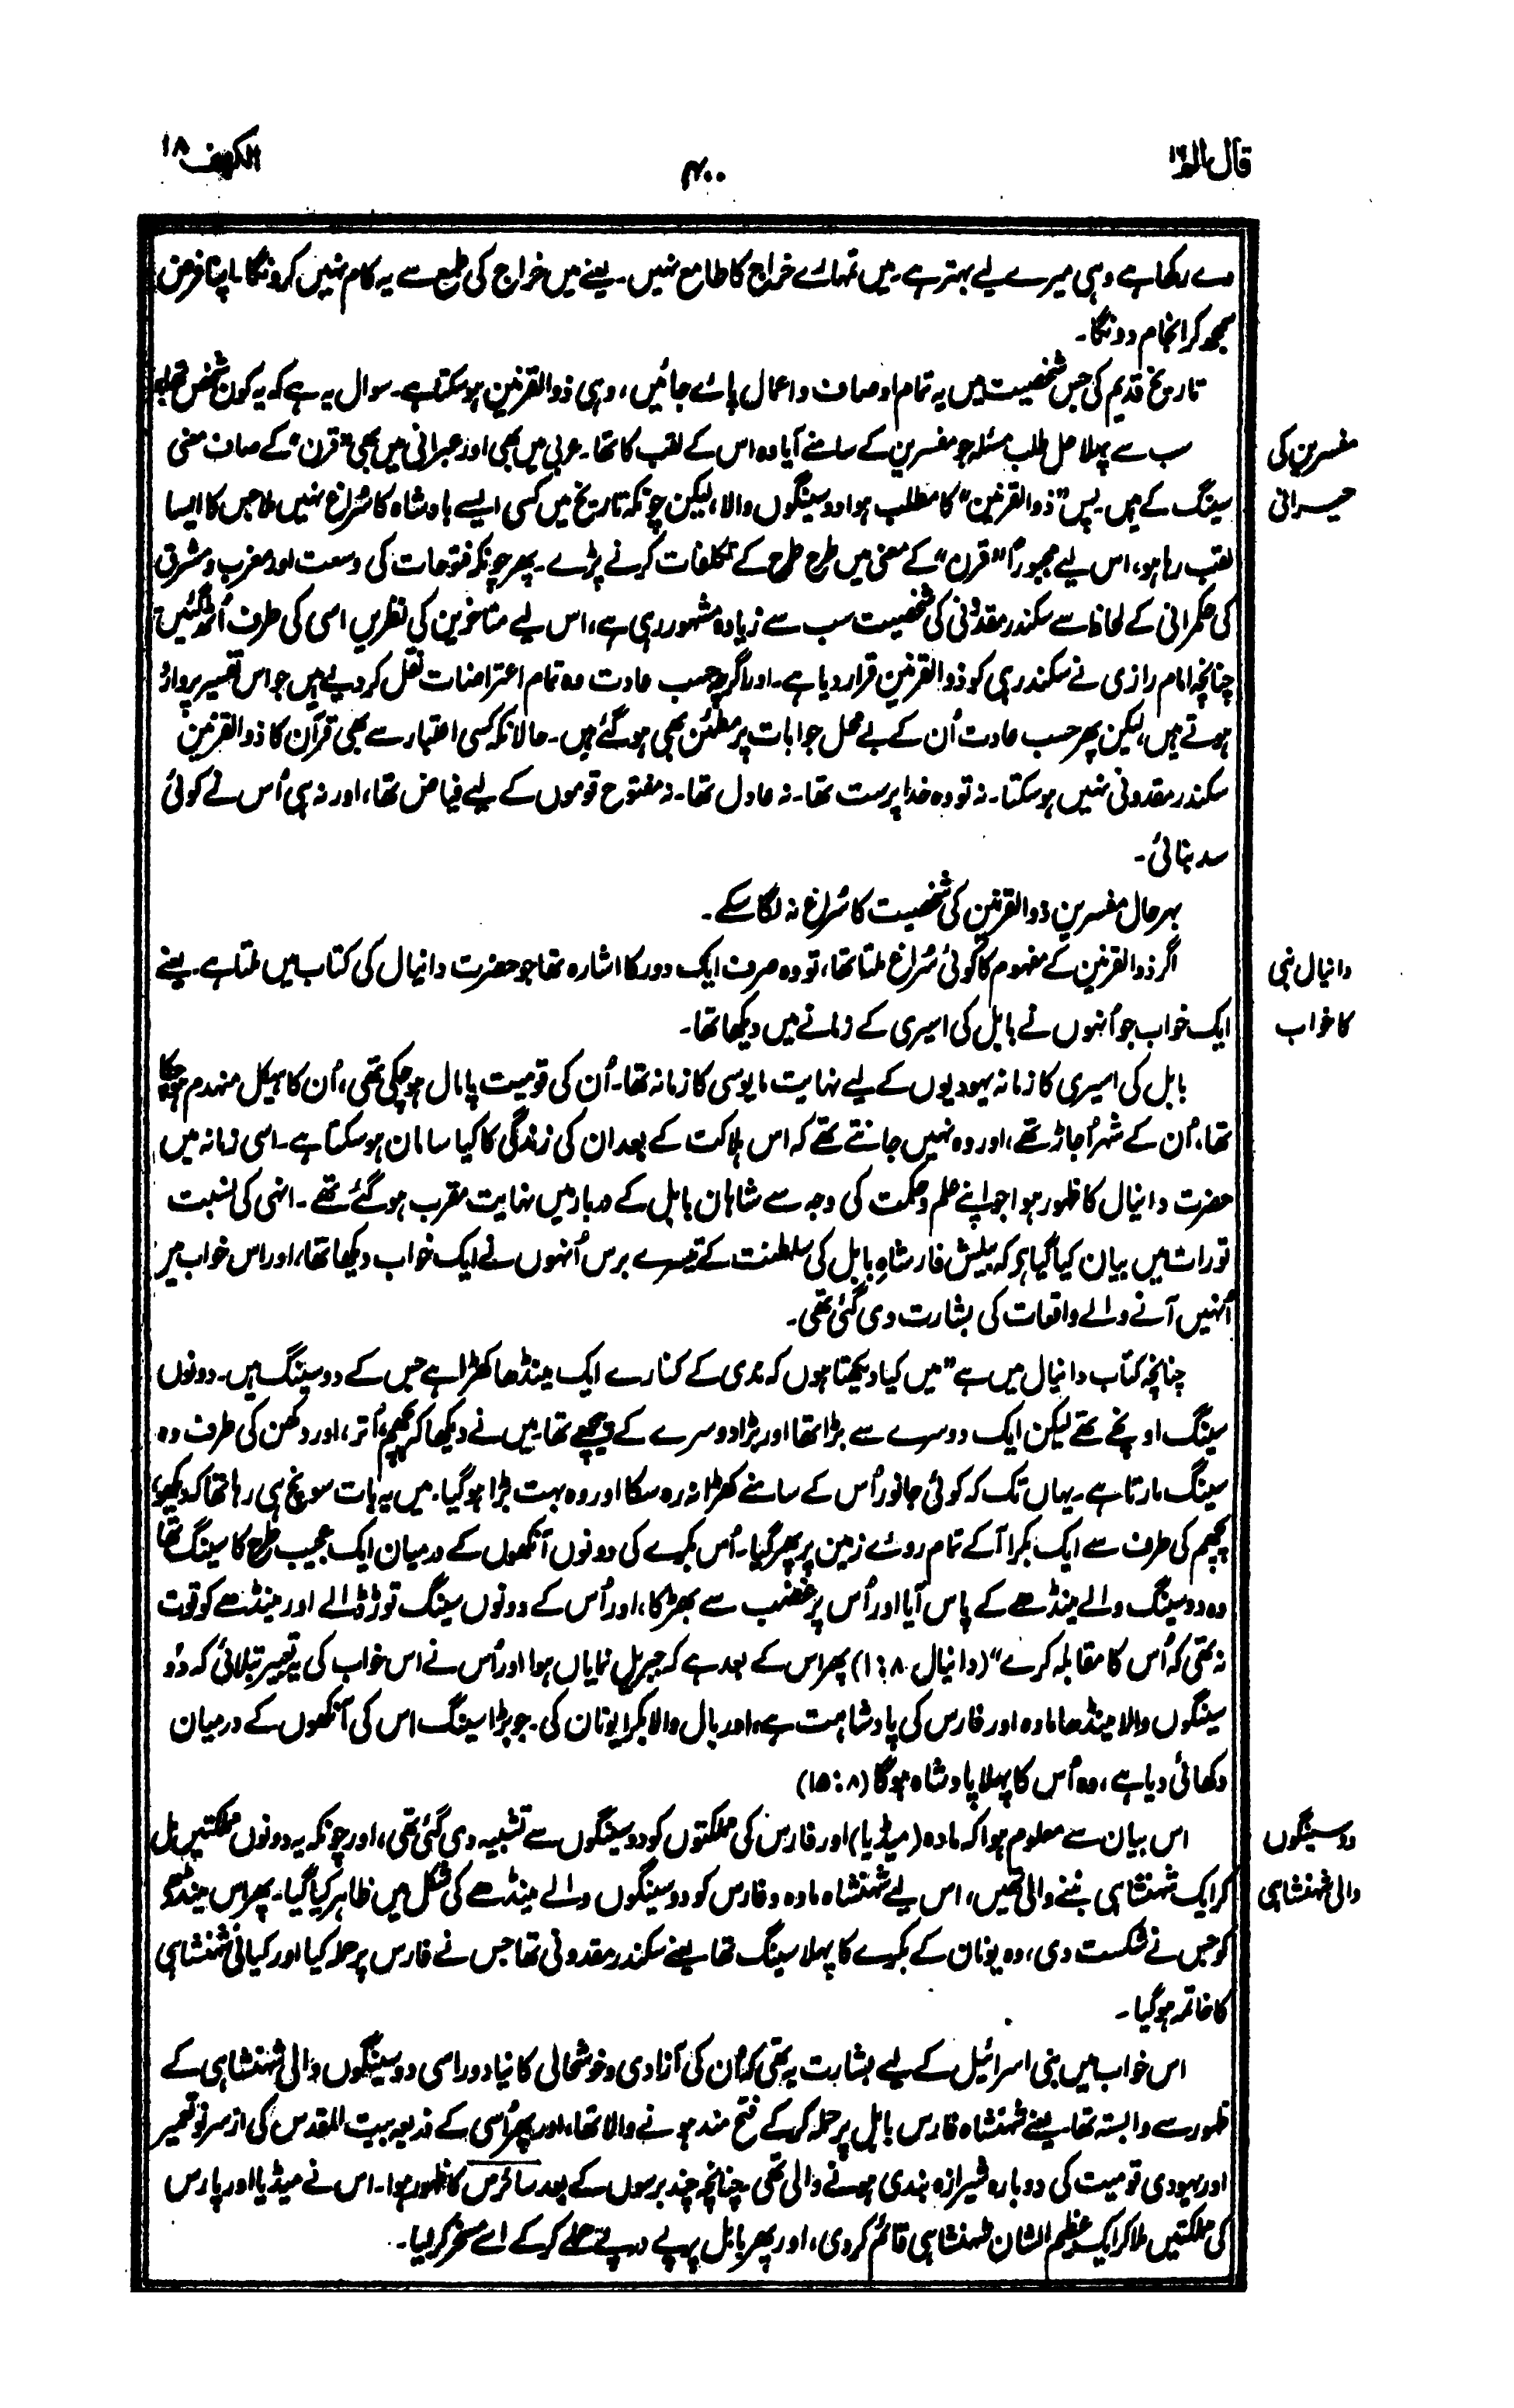 قال الم ۱۶
۴۰۰
الکہف ۱۸
دے رکھا ہے وہی میرے لیے بہتر ہے۔ میں تمہارے خراج کا طامع نہیں۔ یعنے میں خراج کی طمع سے یہ کام نہیں کرونگا۔ اپنا فرض
سمجھ کر انجام دونگا۔
تاریخ قدیم کی جس شخصیت میں یہ تمام اوصاف و اعمال پائے جائیں، وہی ذوالقرنین ہوسکتا ہے۔ سوال یہ ہے کہ یہ کون شخص تھا؟
مفسرین کی
حیرانی
سب سے پہلا حل طلب مسئلہ جو مفسرین کے سامنے آیا وہ اس کے لقب کا تھا۔ عربی میں بھی اور عبرانی میں بھی "قرن" کے صاف معنی
سینگ کے ہیں۔ پس "ذوالقرنین" کا مطلب ہوا دو سینگوں والا، لیکن چونکہ تاریخ میں کسی ایسے بادشاہ کا سُراغ نہیں ملا جس کا ایسا
لقب رہا ہو، اس لیے مجبوراً "قرن" کے معنی میں طرح طرح کے تکلفات کرنے پڑے۔ پھر چونکہ فتوحات کی وسعت اور مغرب و مشرق
کی حکمرانی کے لحاظ سے سکندر مقدونی کی شخصیت سب سے زیادہ مشہور رہی ہے، اس لیے متاخرین کی نظریں اسی کی طرف اُٹھ گئیں
چنانچہ امام رازی نے سکندر ہی کو ذوالقرنین قرار دیا ہے۔ اور اگرچہ حسب عادت وہ تمام اعتراضات نقل کر دیے ہیں جو اس تفسیر پر وارد
ہوتے ہیں، لیکن پھر حسب عادت اُن کے بے محل جوابات پر مطمئن بھی ہو گئے ہیں۔ حالانکہ کسی اعتبار سے بھی قرآن کا ذوالقرنین
سکندر مقدونی نہیں ہوسکتا۔ نہ تو وہ خدا پرست تھا۔ نہ عادل تھا۔ نہ مفتوح قوموں کے لیے فیاض تھا، اور نہ ہی اُس نے کوئی
سد بنائی۔
بہرحال مفسرین ذوالقرنین کی شخصیت کا سُراغ نہ لگا سکے۔
دانیال نبی
کا خواب
اگر ذوالقرنین کے مفہوم کا کوئی سُراغ ملتا تھا، تو وہ صرف ایک دور کا اشارہ تھا جو حضرت دانیال کی کتاب میں ملتا ہے۔ یعنے
ایک خواب جو اُنہوں نے بابل کی اسیری کے زمانے میں دیکھا تھا۔
بابل کی اسیری کا زمانہ یہودیوں کے لیے نہایت مایوسی کا زمانہ تھا۔ اُن کی قومیت پامال ہوچکی تھی، اُن کا ہیکل منہدم ہو چکا
تھا، اُن کے شہر اُجاڑ تھے، اور وہ نہیں جانتے تھے کہ اس ہلاکت کے بعد ان کی زندگی کا کیا سامان ہوسکتا ہے۔ اسی زمانہ میں
حضرت دانیال کا ظہور ہوا جو اپنے علم و حکمت کی وجہ سے شاہان بابل کے دربار میں نہایت مقرب ہو گئے تھے۔ انہی کی نسبت
تورات میں بیان کیا گیا ہے کہ بیلش فار شاہِ بابل کی سلطنت کے تیسرے برس اُنہوں نے ایک خواب دیکھا تھا، اور اس خواب میں
اُنہیں آنے والے واقعات کی بشارت دی گئی تھی۔
چنانچہ کتاب دانیال میں ہے "میں کیا دیکھتا ہوں کہ ندی کے کنارے ایک مینڈھا کھڑا ہے جس کے دو سینگ ہیں۔ دونوں
سینگ اونچے تھے لیکن ایک دوسرے سے بڑا تھا اور بڑا دوسرے کے پیچھے تھا۔ میں نے دیکھا کہ پچھم، اُتر، اور دکھن کی طرف وہ
سینگ مارتا ہے۔ یہاں تک کہ کوئی جانور اُس کے سامنے کھڑا نہ رہ سکا اور وہ بہت بڑا ہو گیا۔ میں یہ بات سونچ ہی رہا تھا کہ دیکھو،
پچھم کی طرف سے ایک بکرا آکے تمام روئے زمین پر پھر گیا۔ اُس بکرے کی دونوں آنکھوں کے درمیان ایک عجیب طرح کا سینگ تھا
وہ دو سینگ والے مینڈھے کے پاس آیا اور اُس پر غضب سے بھڑکا، اور اُس کے دونوں سینگ توڑ ڈالے اور مینڈھے کو قوت
نہ تھی کہ اُس کا مقابلہ کرے" (دانیال ۸:۱) پھر اس کے بعد ہے کہ جبریل نمایاں ہوا اور اُس نے اس خواب کی یہ تعبیر بتلائی کہ دو
سینگوں والا مینڈھا مادہ اور فارس کی پادشاہت ہے، اور بال والا بکرا یونان کی۔ جو بڑا سینگ اس کی آنکھوں کے درمیان
دکھائی دیا ہے، وہ اُس کا پہلا پادشاہ ہوگا (۸:۱۵)
دو سینگوں
والی شہنشاہی
اس بیان سے معلوم ہوا کہ مادہ (میڈیا) اور فارس کی مملکتوں کو دو سینگوں سے تشبیہ دی گئی تھی، اور چونکہ یہ دونوں مملکتیں مل
کر ایک شہنشاہی بننے والی تھیں، اس لیے شہنشاہ مادہ و فارس کو دو سینگوں والے مینڈھے کی شکل میں ظاہر کیا گیا۔ پھر اس مینڈھے
کو جس نے شکست دی، وہ یونان کے بکرے کا پہلا سینگ تھا یعنے سکندر مقدونی تھا جس نے فارس پر حملہ کیا اور کیانی شہنشاہی
کا خاتمہ ہو گیا۔
اس خواب میں بنی اسرائیل کے لیے بشارت یہ تھی کہ اُن کی آزادی و خوشحالی کا نیا دور اسی دو سینگوں والی شہنشاہی کے
ظہور سے وابستہ تھا۔ یعنے شہنشاہ فارس بابل پر حملہ کرکے فتح مند ہونے والا تھا، اور پھر اُسی کے ذریعہ بیت المقدس کی از سر نو تعمیر
اور یہودی قومیت کی دوبارہ شیرازہ بندی ہونے والی تھی۔ چنانچہ چند برسوں کے بعد سائرس کا ظہور ہوا۔ اس نے میڈیا اور پارس
کی مملکتیں ملا کر ایک عظیم الشان شہنشاہی قائم کر دی، اور پھر بابل پر پے در پے حملے کرکے اسے مسخر کر لیا۔